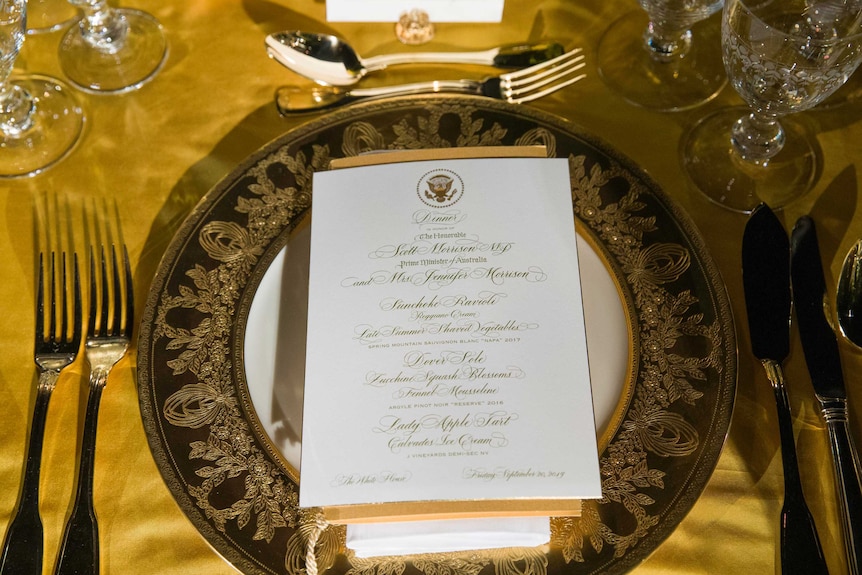 Dinner
in honor of
The Honorable
Scott Morrison MP
Prime Minister of Australia
and Mrs. Jennifer Morrison
Sunchoke Ravioli
Reggiano Cream
Late Summer Shaved Vegetables
SPRING MOUNTAIN SAUVIGNON BLANC "NAPA" 2017
Dover Sole
Zucchini Squash Blossoms
Fennel Mousseline
ARGYLE PINOT NOIR "RESERVE" 2016
Lady Apple Tart
Calvados Ice Cream
J VINEYARDS DEMI-SEC NV
The White House
Friday, September 20, 2019